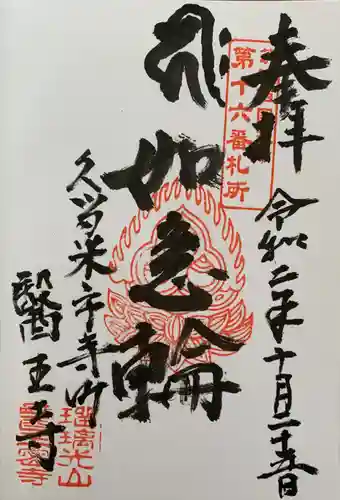 奉拝
令和二年十月二十
第十六番札所
如意輪
久留米市寺町
醫王寺
瑠璃光山